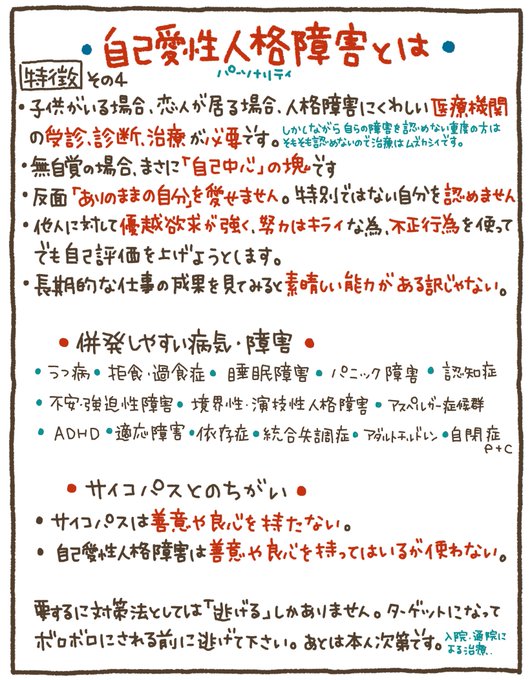 ・自己愛性人格障害とは・
パーソナリティ
特徴 その4
・子供がいる場合、恋人が居る場合、人格障害にくわしい医療機関
の受診、診断、治療が必要です。しかしながら自らの障害を認めない重度の方は
そもそも認めないので治療はムズカシイです。
・無自覚の場合、まさに「自己中心」の塊です
・反面「ありのままの自分」を愛せません。特別ではない自分を認めません
・他人に対して優越欲求が強く、努力はキライな為、不正行為を使って
でも自己評価を上げようとします。
・長期的な仕事の成果を見てみると素晴しい能力がある訳じゃない。
・併発しやすい病気・障害・
・うつ病・拒食・過食症・睡眠障害・パニック障害・認知症
・不安・強迫性障害・境界性・演技性人格障害・アスペルガー症候群
・ADHD・適応障害・依存症・統合失調症・アダルトチルドレン・自閉症
etc
・サイコパスとのちがい・
・サイコパスは善意や良心を持たない。
・自己愛性人格障害は善意や良心を持ってはいるが使わない。
要するに対策法としては「逃げる」しかありません。ターゲットになって
ボロボロにされる前に逃げて下さい。あとは本人次第です。入院・通院に
よる治療..